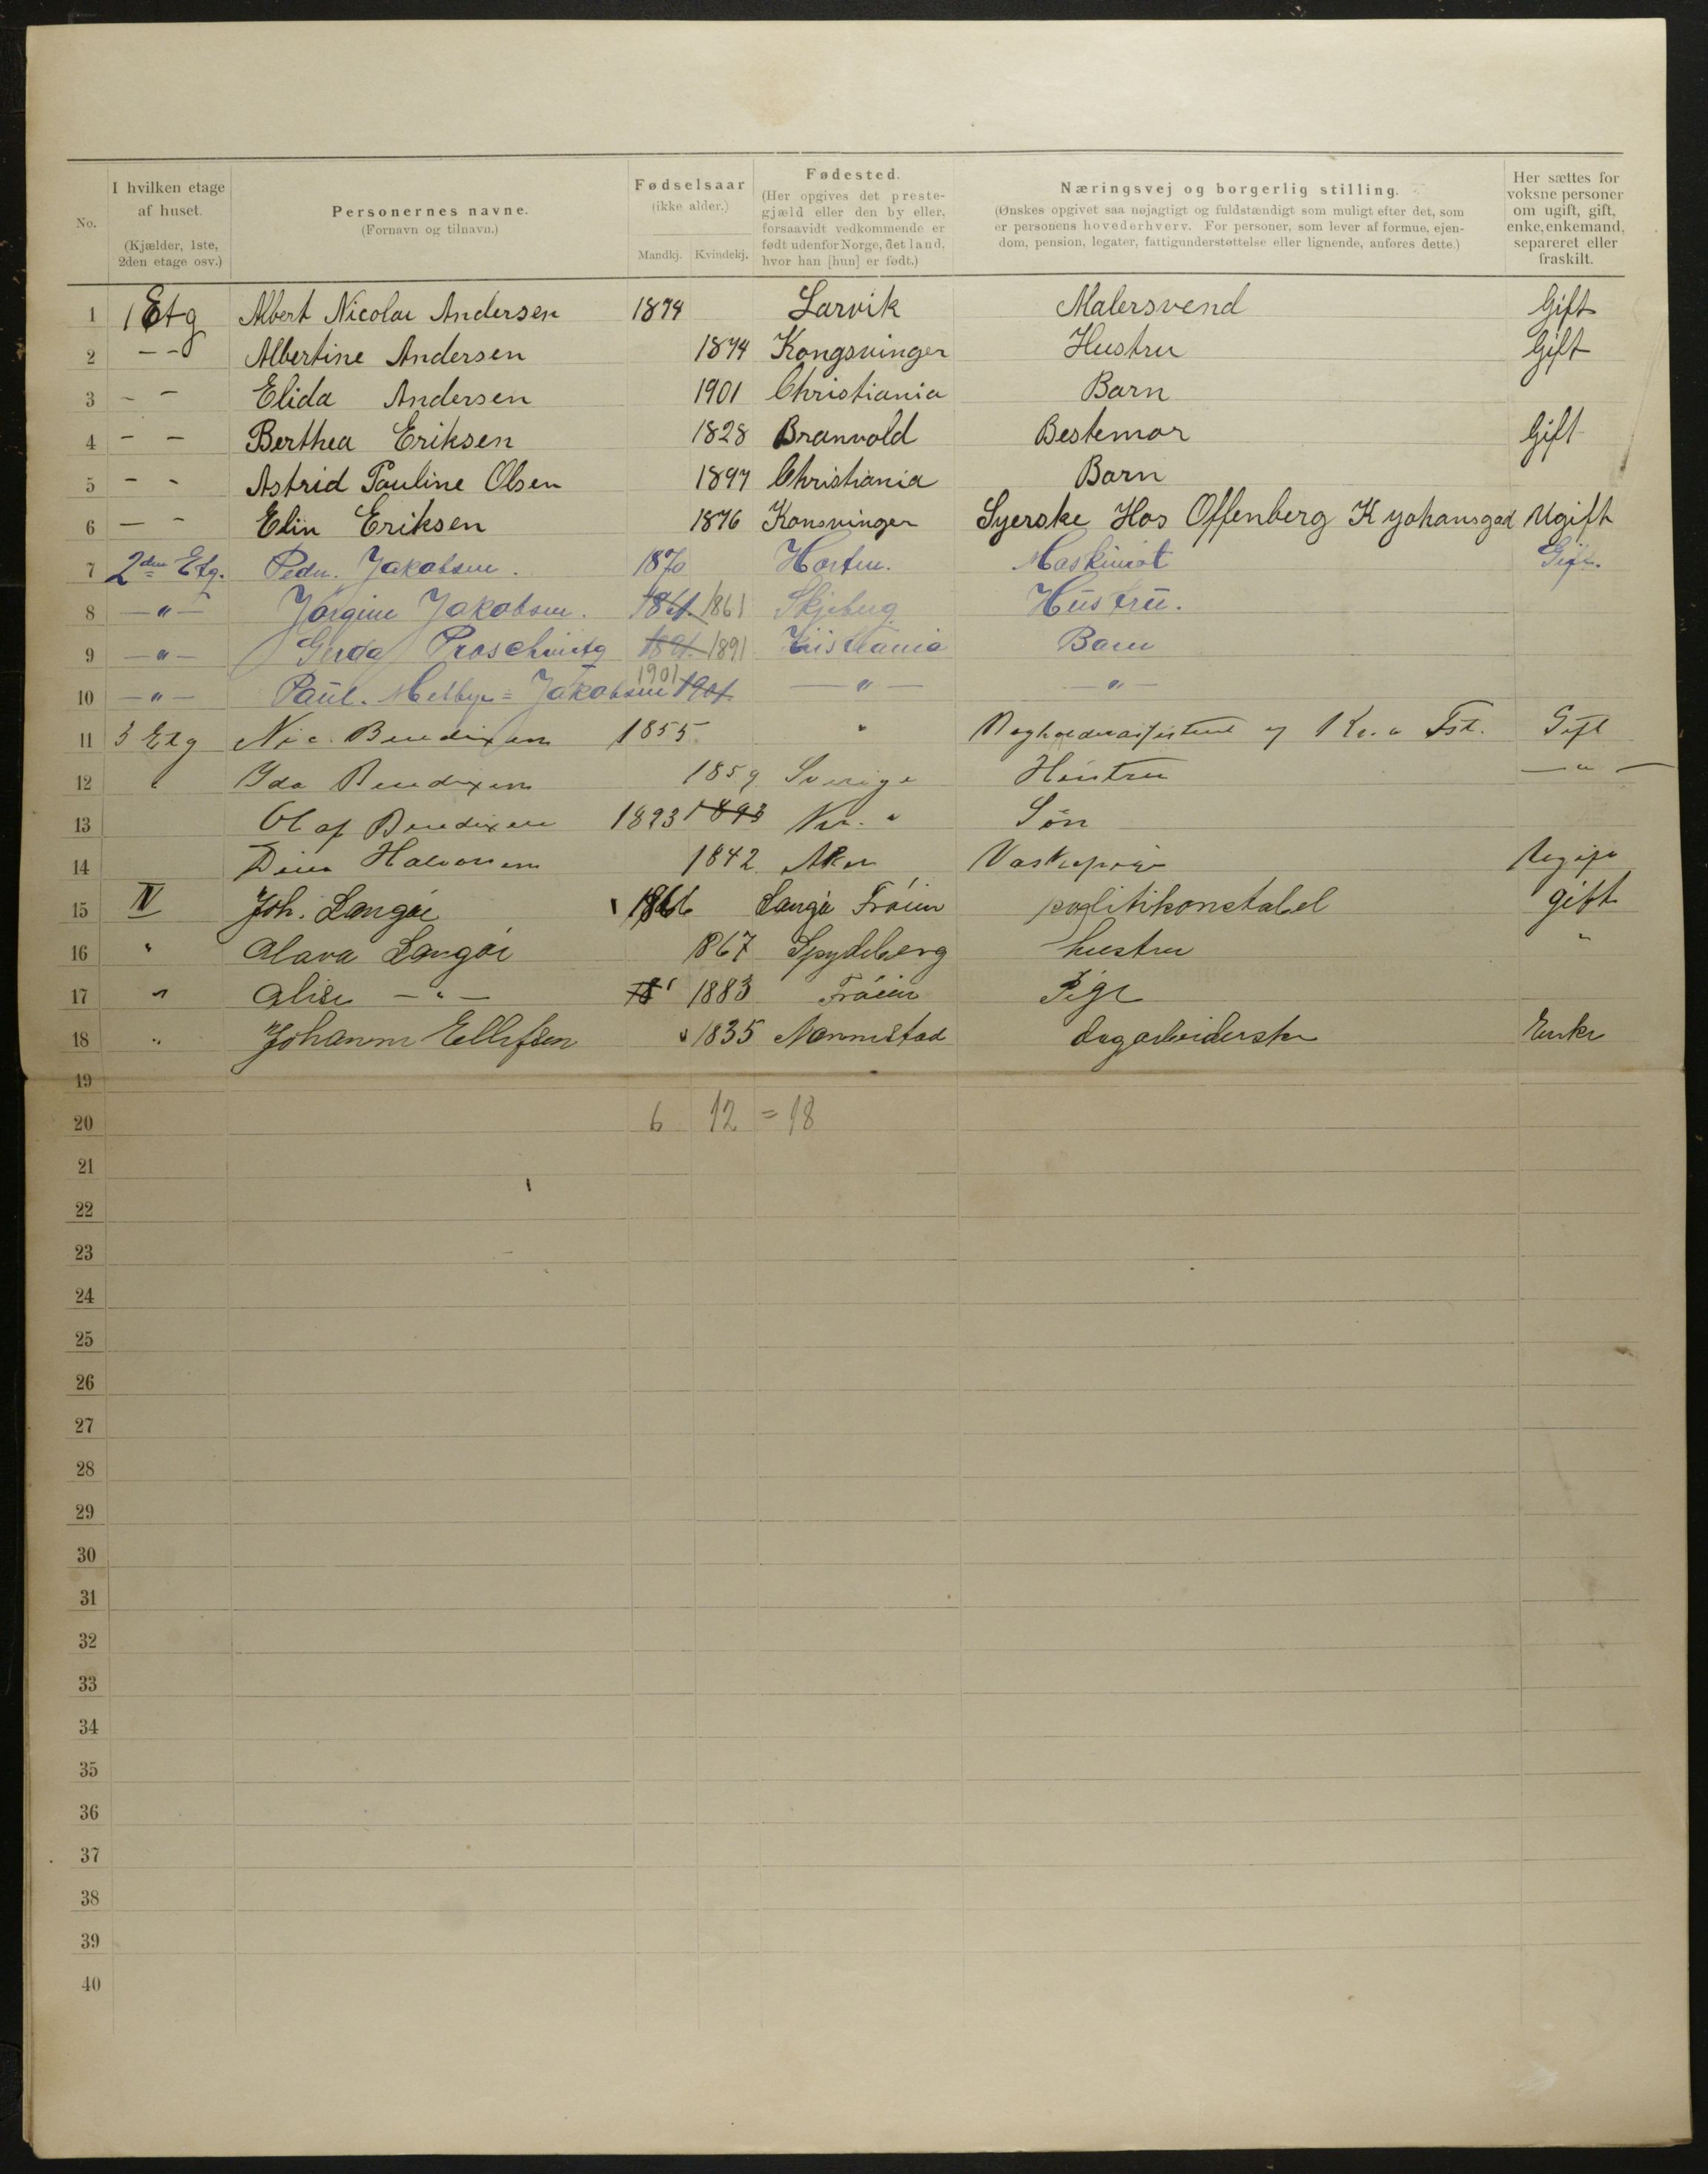 No. | I hvilken etage af huset. (Kjælder, 1ste, 2den etage osv.) | Personernes navne. (Fornavn og tilnavn.) | Fødselsaar (ikke alder.) Mandkj. Kvindekj. | Fødested. (Her opgives det prestegjæld eller den by eller, forsaavidt vedkommende er født udenfor Norge, det land, hvor han [hun] er født.) | Næringsvej og borgerlig stilling. (Ønskes opgivet saa nøjagtigt og fuldstændigt som muligt efter det, som er personens hovederhverv. For personer, som lever af formue, ejendom, pension, legater, fattigunderstøttelse eller lignende, anføres dette.) | Her sættes for voksne personer om ugift, gift, enke, enkemand, separeret eller fraskilt.
1 1 Etg Albert Nicolai Andersen 1874 Larvik Malersvend Gift
2 - - Albertine Andersen 1874 Kongsvinger Hustru Gift
3 - - Elida Andersen 1901 Christiania Barn
4 - - Berthea Eriksen 1828 Branvold Bestemor Gift
5 - - Astrid Pauline Olsen 1897 Christiania Barn
6 - - Elin Eriksen 1876 Konsvinger Syerske Hos Offenberg K yohansgad Ugift
7 2den Etg. Peder Jakobsen. 1870 Horten. Maskinist Gift.
8 —"— Jørgine Jakobsen. 1861 Skjeberg Hustru.
9 —"— Gerda 1891 Kristiania Barn
10 —"— Paul. Melbye = Jakobsen 1901 1901 —"— —"—
11 3 Etg Nic. Bendixen 1855 " Kr.a Tst. Gift
12 " Ida Bendixen 1859 Sverige Hustru —"—
13 Olaf Bendixen 1893 1893 Kr. a Søn
14 Halvorsen 1842 Aker Vaskepige Ugift
15 IV Joh. Langøi 1866 Langøi Frøien politikonstabel gift
16 " Clara Langøi 867 Spydeberg hustru "
17 " Alise —"— 18 1883 Frøien Pige
18 " Johanne Ellefsen 1835 Nannestad dagarbeiderske Enke
19
20 6 12 = 18
21
22
23
24
25
26
27
28
29
30
31
32
33
34
35
36
37
38
39
40